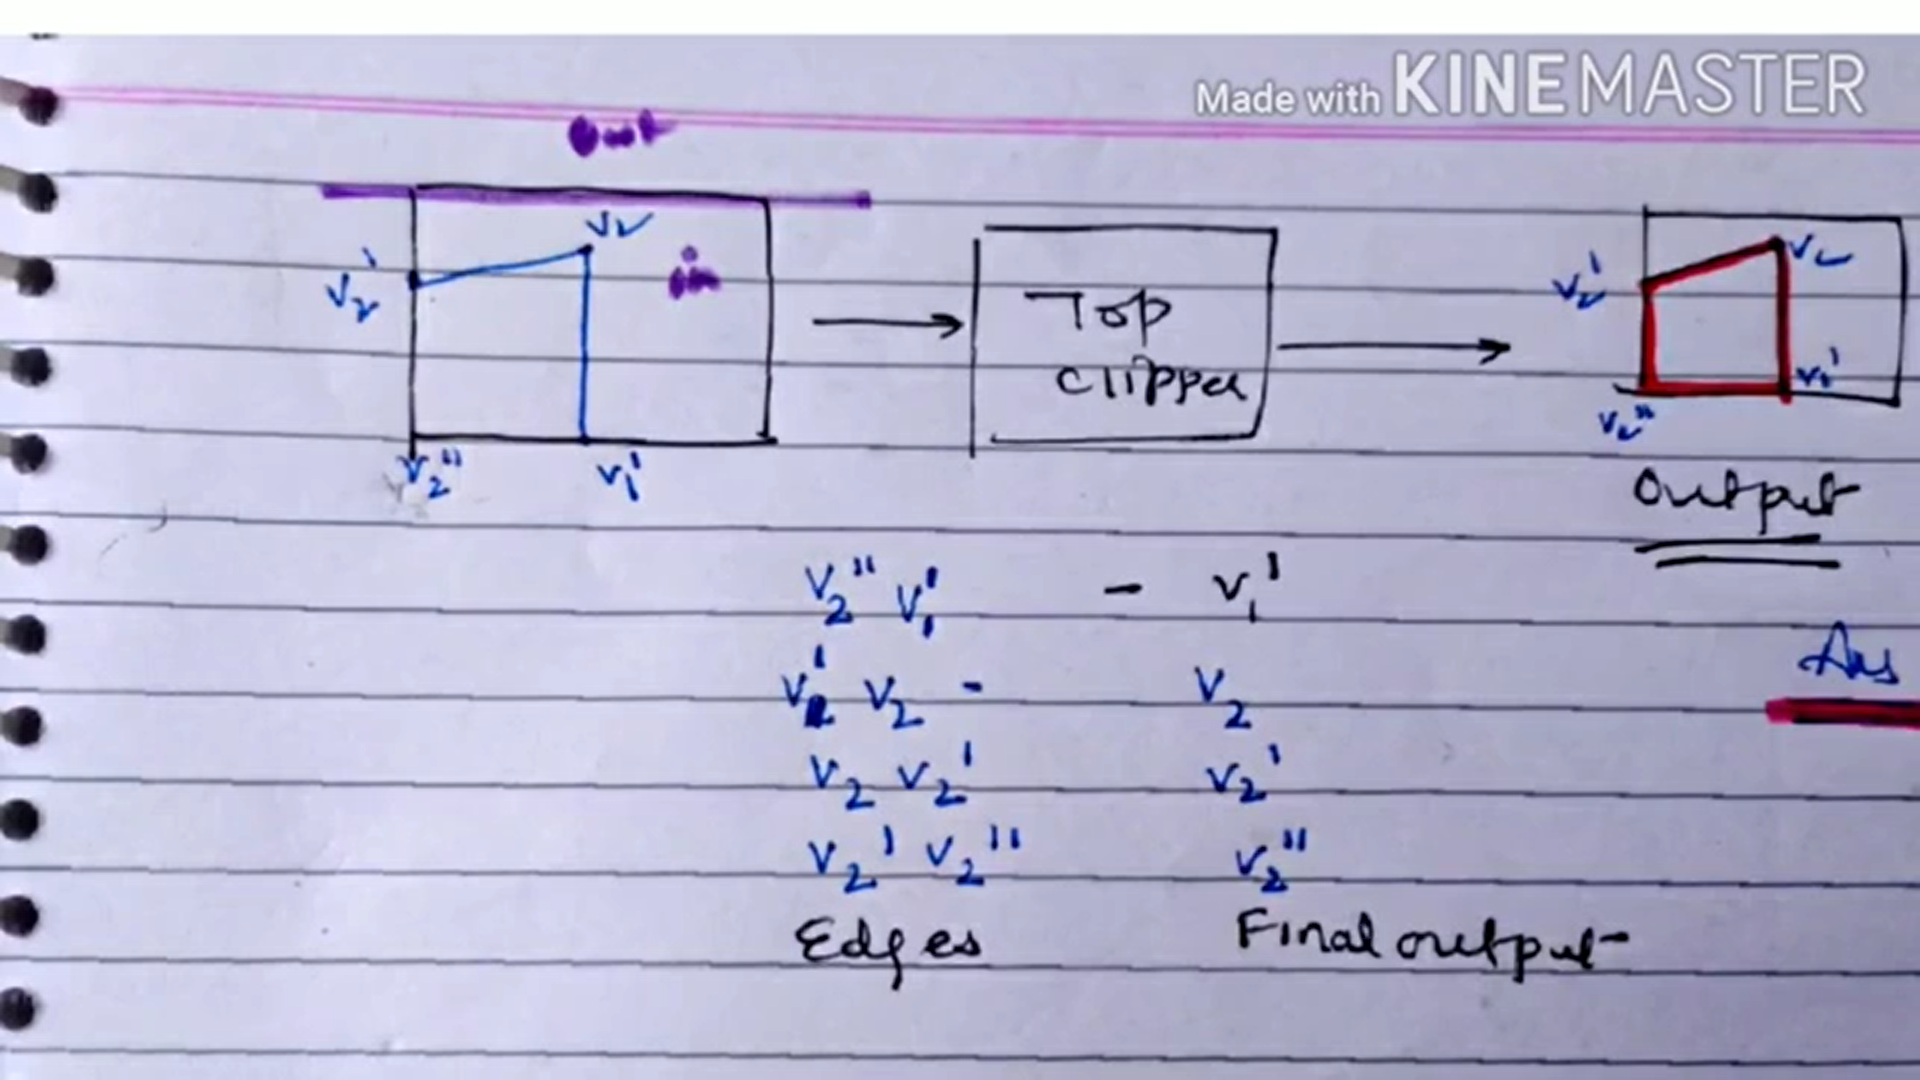 Made with KINEMASTER
out
V2
in
V2'
V2"
V1'
Top
clipper
V2'
V2
V1'
V2"
Output
V2" V1' - V1'
V2' V2 - V2
V2 V2' V2'
V2' V2" V2"
Ans
Edges Final output